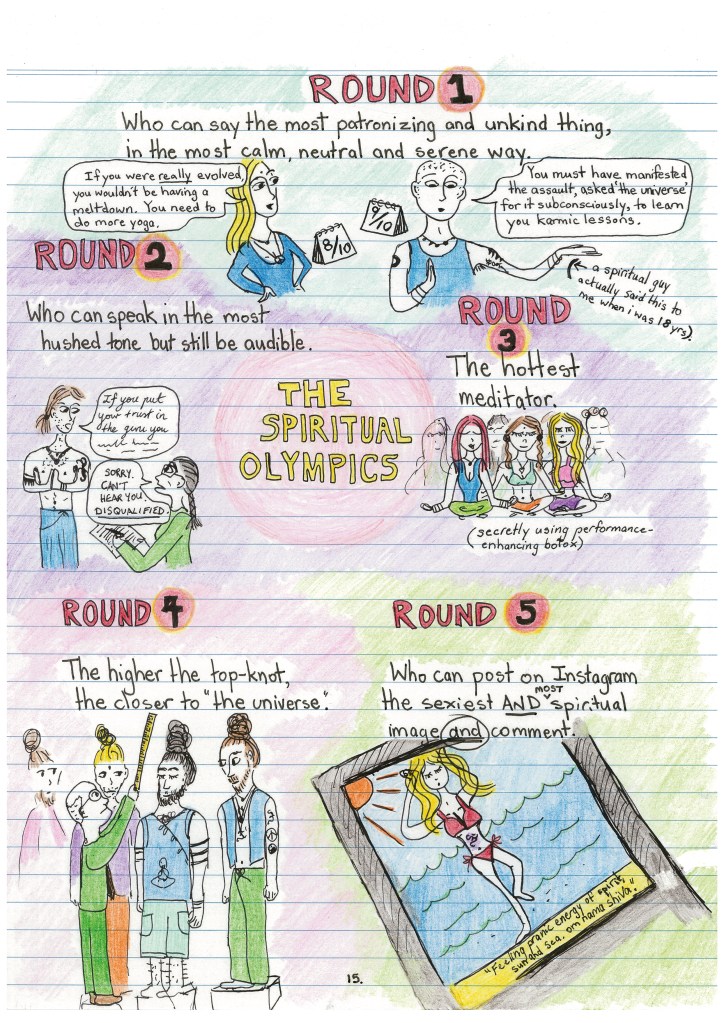 ROUND 1
Who can say the most patronizing and unkind thing,
in the most calm, neutral and serene way.
If you were really evolved,
you wouldn't be having a
meltdown. You need to
do more yoga.
8/10
9/10
You must have manifested
the assault, asked 'the universe'
for it subconsciously, to learn
you karmic lessons.
(a spiritual guy
actually said this to
me when i was 18 yrs).
ROUND 2
Who can speak in the most
hushed tone but still be audible.
If you put
your trust in
the guru you
SORRY.
CAN'T
HEAR YOU.
DISQUALIFIED.
THE
SPIRITUAL
OLYMPICS
ROUND
3
The hottest
meditator.
(secretly using performance-
enhancing botox)
ROUND 4
The higher the top-knot,
the closer to "the universe".
ROUND 5
Who can post on Instagram
the sexiest AND MOST spiritual
image and comment.
"Feeling pranic energy of spirit,
sun and sea. om nama shiva."
15.